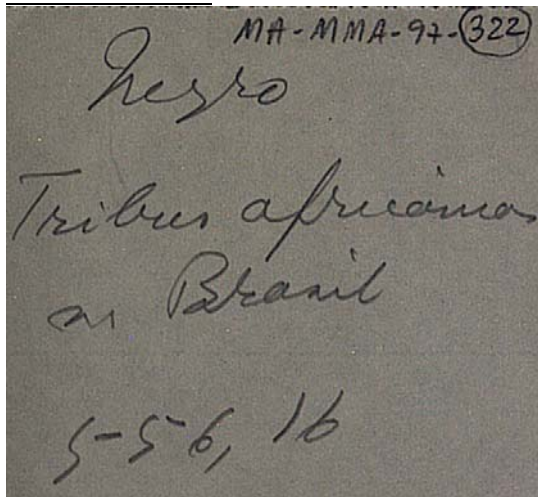 MA-MMA-97-322
Negro
Tribus africanas
no Brasil
556, 16